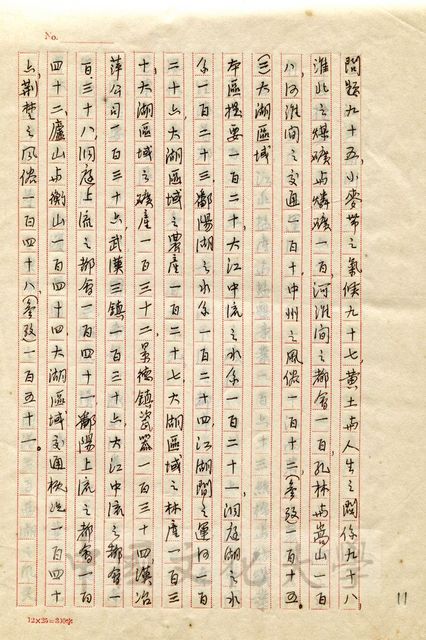 No.
問題九十五，小麥帶之氣候九十七，黃土與人生之關係九十八，
淮北之煤礦與燐礦一百，河淮間之都會一百，孔林與嵩山一百
八河淮間之交通一百十，中州之風俗一百十二（參攷一百十五。
(三)大湖區域
本區提要一百二十，大江中流之水系一百二十一，洞庭湖之水
系一百二十三，鄱陽湖之水系一百二十四，江湖間之運河一百
二十六，大湖區域之農產一百二十七，大湖區域之林產一百三
十，大湖區域之礦產一百三十二，景德鎮瓷器一百三十四漢冶
萍公司一百三十六，武漢三鎮一百三十六，大江中流之都會一
百三十八，洞庭上流之都會一百四十一鄱陽上流之都會一百
四十二廬山與衡山一百四十四大湖區域交通概況一百四十
六，荊楚之風俗一百四十八，（參攷）一百五十一。
中國文化大學
11
12×25=300字